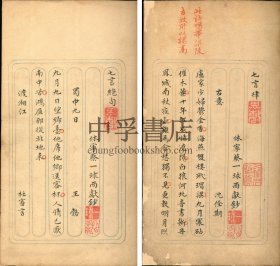 七言律
休寧蔡一球西畝鈔
古意 沈佺期
盧家少婦鬱金香海燕雙棲玳瑁梁九月寒砧
催木葉十年征戍憶遼陽白狼河北音書斷丹
鳳城南秋夜長誰為含愁獨不見更教明月照
七言絕句
休寧蔡一球西畝鈔
蜀中九日 王勃
九月九日望鄉臺他席他鄉送客杯人情已厭
南中苦鴻雁那從北地來
渡湘江 杜審言
中孚書店